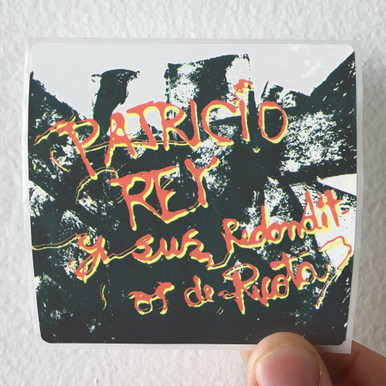 PATRICIO
REY
y sus Redondit
os de Ricota